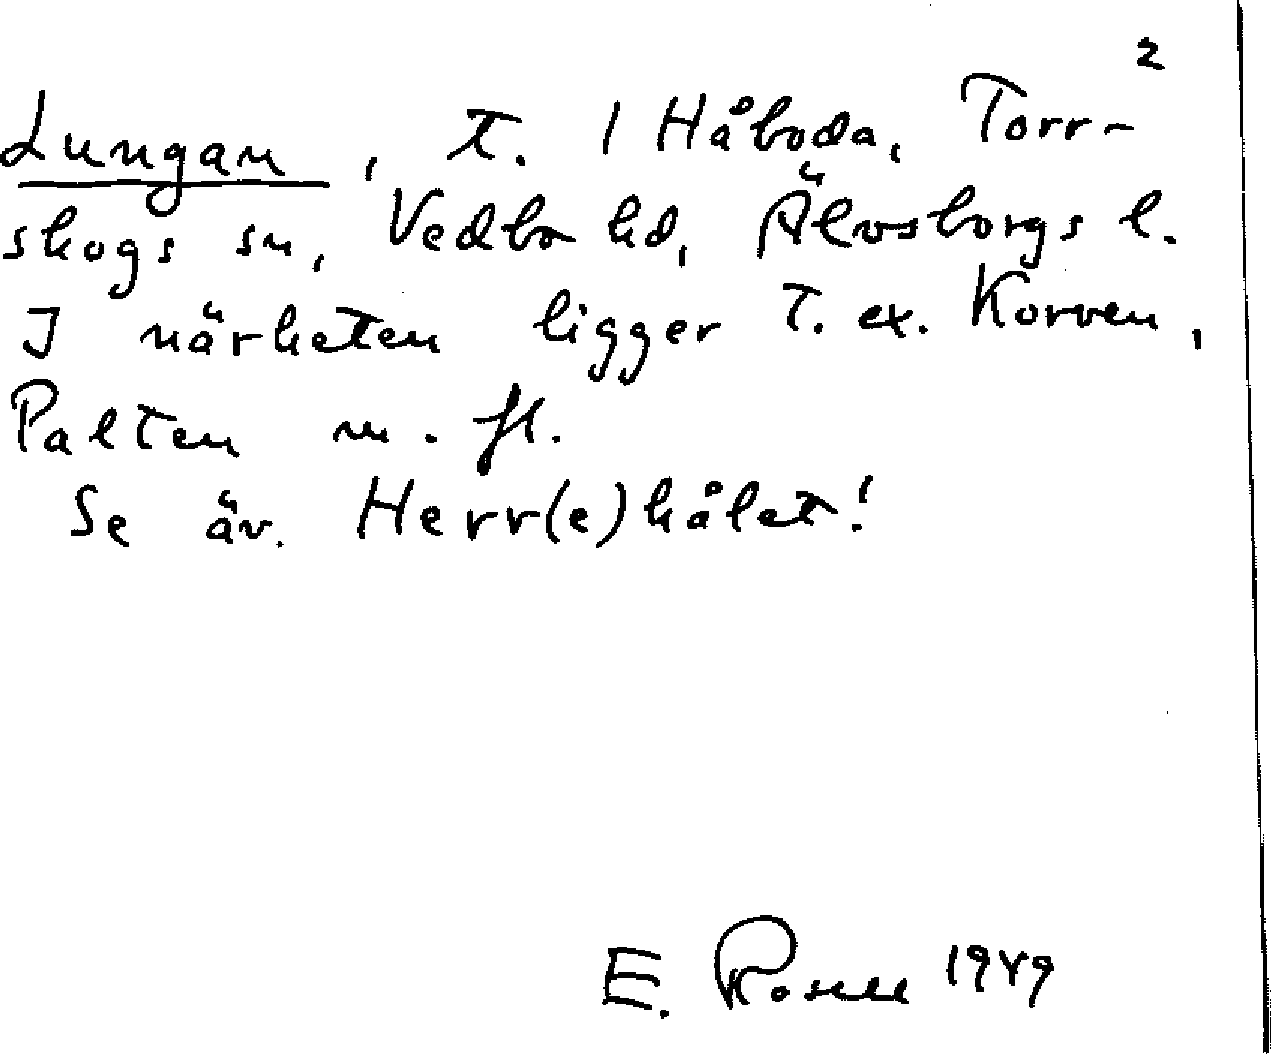 2
Lungan, t. 1 Håboda, Torr-
skogs sn, Vedbo hd, Älvsborgs l.
I närheten ligger t. ex. Korven,
Palten m. fl.
Se äv. Herr(e)hålet!
E. Rosell 1949